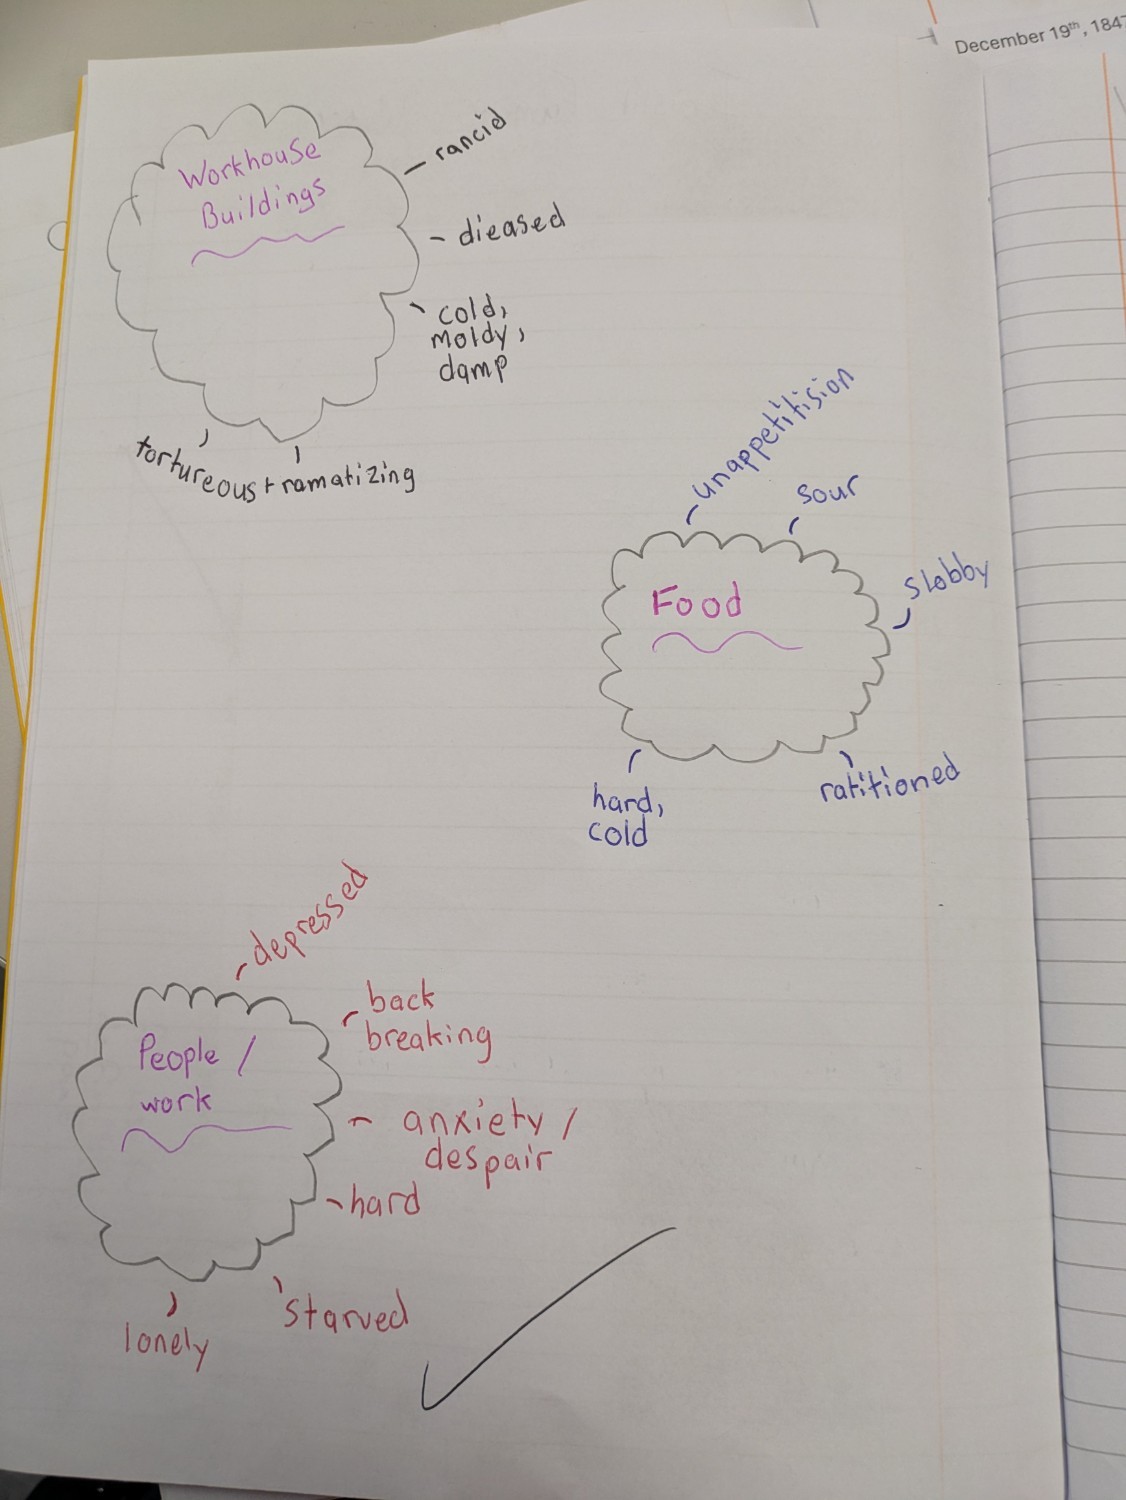 December 19th, 1847
Workhouse
Buildings
- rancid
- dieased
cold,
moldy,
damp
tortureous
tramatizing
unappetitision
sour
slobby
Food
hard,
cold
ratitioned
depressed
back
breaking
People /
work
- anxiety /
despair
- hard
starved
lonely